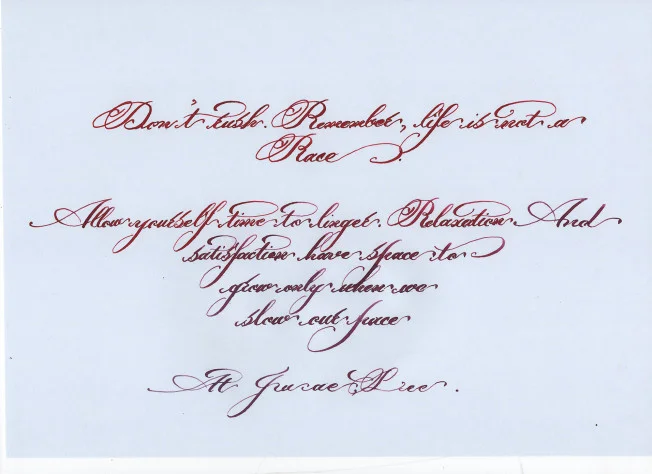 Don't rush. Remember, life is not a
Race.
Allow yourself time to linger. Relaxation And
satisfaction have space to
grow only when we
slow our pace